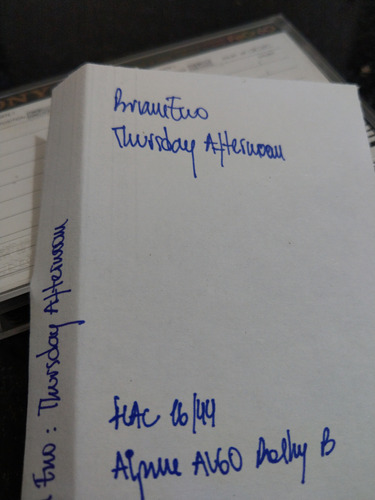 Brian Eno
Thursday Afternoon
FLAC 16/44
Alpine AL60 Dolby B
Eno: Thursday Afternoon